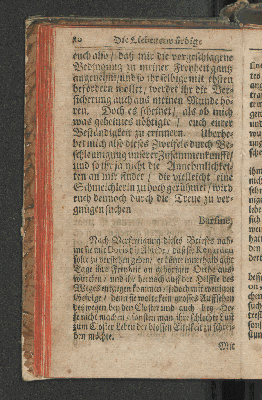 Die Liebenswürdige
euch also / daß mir die vorgeschlagene
Bedingung zu meiner Freyheit gantz
angenehm / und so ihr selbige mit ehsten
befördern wollet / werdet ihr die Ver-
sicherung auch aus meinem Munde hö-
ren. Doch es scheinet / als ob mich
was geheimes nöthigte / euch eurer
Beständigkeit zu erinnern. Uberhe-
bet mich also dieses Zweifels durch Be-
schleunigung unserer Zusammenkunfft /
und so ihr ja nicht die Annehmlichkei-
ten an mir findet / die vielleicht eine
Schmeichlerin zu hoch gerühmet / wird
euch dennoch durch die Treue zu ver-
gnügen suchen
Nach Verfertigung dieses Briefes nah-
me sie mit
solte zu verstehen geben / er könte innerhalb acht
Tage ihre Freyheit an gehörigen Orthe aus-
würcken / und ihr hernach auf der Helffte des
Weges entgegen kommen / jedoch mit wenigen
Gefolge / denn sie wolte kein grosses Aufsehen
wegen bey den Closter und auch bey
nicht machen / sonsten man ihr
zum Closter Leben der blossen Eitelkeit zu schrei-
ben möchte.
Mit